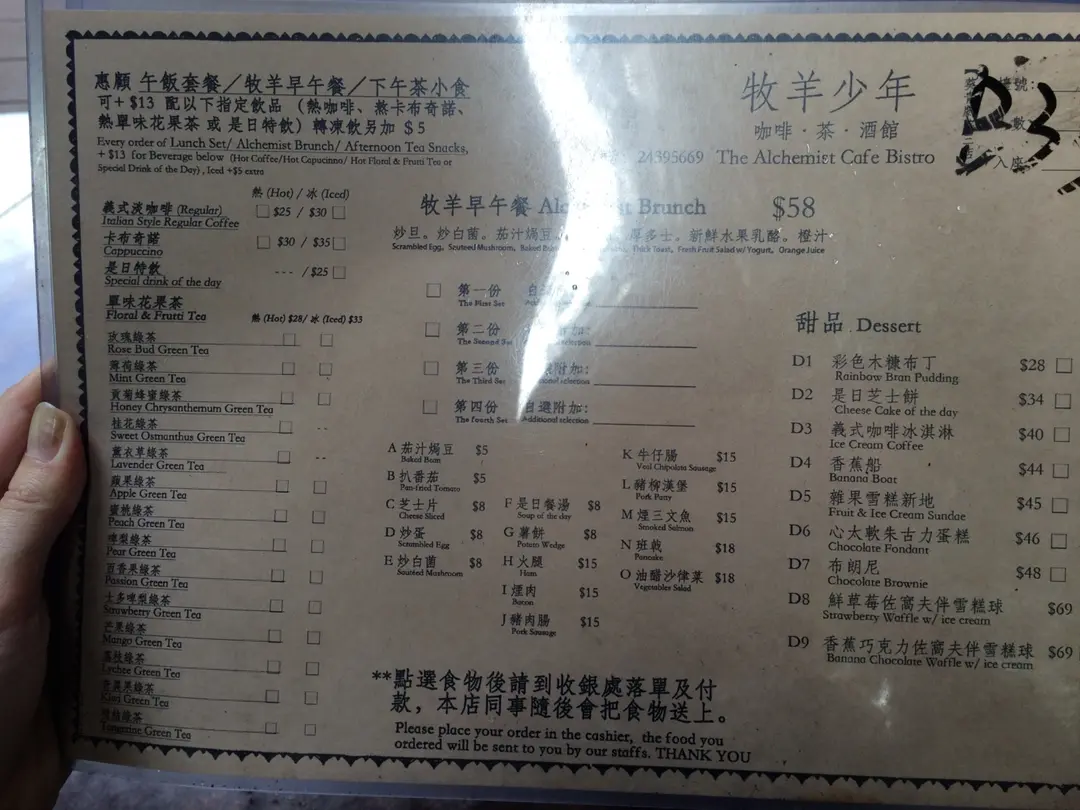 惠顧 午飯套餐／牧羊早午餐／下午茶小食
可+ $13 配以下指定飲品 (熱咖啡、熱卡布奇諾、
熱單味花果茶 或 是日特飲) 轉凍飲另加 $5
Every order of Lunch Set/ Alchemist Brunch/ Afternoon Tea Snacks,
+ $13 for Beverage below (Hot Coffee/Hot Capucinno/ Hot Floral & Frutti Tea or
Special Drink of the Day) , Iced +$5 extra
熱 (Hot) / 冰 (Iced)
義式淡咖啡 (Regular) $25 / $30
Italian Style Regular Coffee
卡布奇諾 $30 / $35
Cappuccino
是日特飲 --- / $25
Special drink of the day
單味花果茶
Floral & Frutti Tea 熱 (Hot) $28/ 冰 (Iced) $33
玫瑰綠茶
Rose Bud Green Tea
薄荷綠茶
Mint Green Tea
貢菊蜂蜜綠茶
Honey Chrysanthemum Green Tea
桂花綠茶 --
Sweet Osmanthus Green Tea
薰衣草綠茶 --
Lavender Green Tea
蘋果綠茶
Apple Green Tea
蜜桃綠茶
Peach Green Tea
啤梨綠茶
Pear Green Tea
百香果綠茶
Passion Green Tea
士多啤梨綠茶
Strawberry Green Tea
芒果綠茶
Mango Green Tea
荔枝綠茶
Lychee Green Tea
奇異果綠茶
Kiwi Green Tea
綠茶
Tangerine Green Tea
牧羊少年
咖啡·茶·酒館
24395669 The Alchemist Cafe Bistro
D3
號:
數
入座
牧羊早午餐 Alchemist Brunch $58
炒旦。炒白菌。茄汁焗豆 厚多士。新鮮水果乳酪。橙汁
Scrambled Egg, Scuteed Mushroom, Baked Thick Toast, Fresh Fruit Salad w/ Yogurt, Orange Juice
第一份
The First Set
第二份
The Second Set selection
第三份 選附加:
The Third Set Additional selection
第四份 自選附加:
The Fourth Set Additional selection
A 茄汁焗豆 $5
Baked Bean
B 扒番茄 $5
Pan-fried Tomato
C 芝士片 $8
Cheese Sliced
D 炒蛋 $8
Scrambled Egg
E 炒白菌 $8
Sautéed Mushroom
F 是日餐湯 $8
Soup of the day
G 薯餅 $8
Potato Wedge
H 火腿 $15
Ham
I 煙肉 $15
Bacon
J 豬肉腸 $15
Pork Sausage
K 牛仔腸 $15
Veal Chipolata Sausage
L 豬柳漢堡 $15
Pork Patty
M 煙三文魚 $15
Smoked Salmon
N 班戟 $18
Pancake
O 油醋沙律菜 $18
Vegetables Salad
甜品 Dessert
D1 彩色木糠布丁 $28
Rainbow Bran Pudding
D2 是日芝士餅 $34
Cheese Cake of the day
D3 義式咖啡冰淇淋 $40
Ice Cream Coffee
D4 香蕉船 $44
Banana Boat
D5 雜果雪糕新地 $45
Fruit & Ice Cream Sundae
D6 心太軟朱古力蛋糕 $46
Chocolate Fondant
D7 布朗尼 $48
Chocolate Brownie
D8 鮮草莓佐窩夫伴雪糕球 $69
Strawberry Waffle w/ ice cream
D9 香蕉巧克力佐窩夫伴雪糕球 $69
Banana Chocolate Waffle w/ ice cream
**點選食物後請到收銀處落單及付
款，本店同事隨後會把食物送上。
Please place your order in the cashier, the food you
ordered will be sent to you by our staffs. THANK YOU